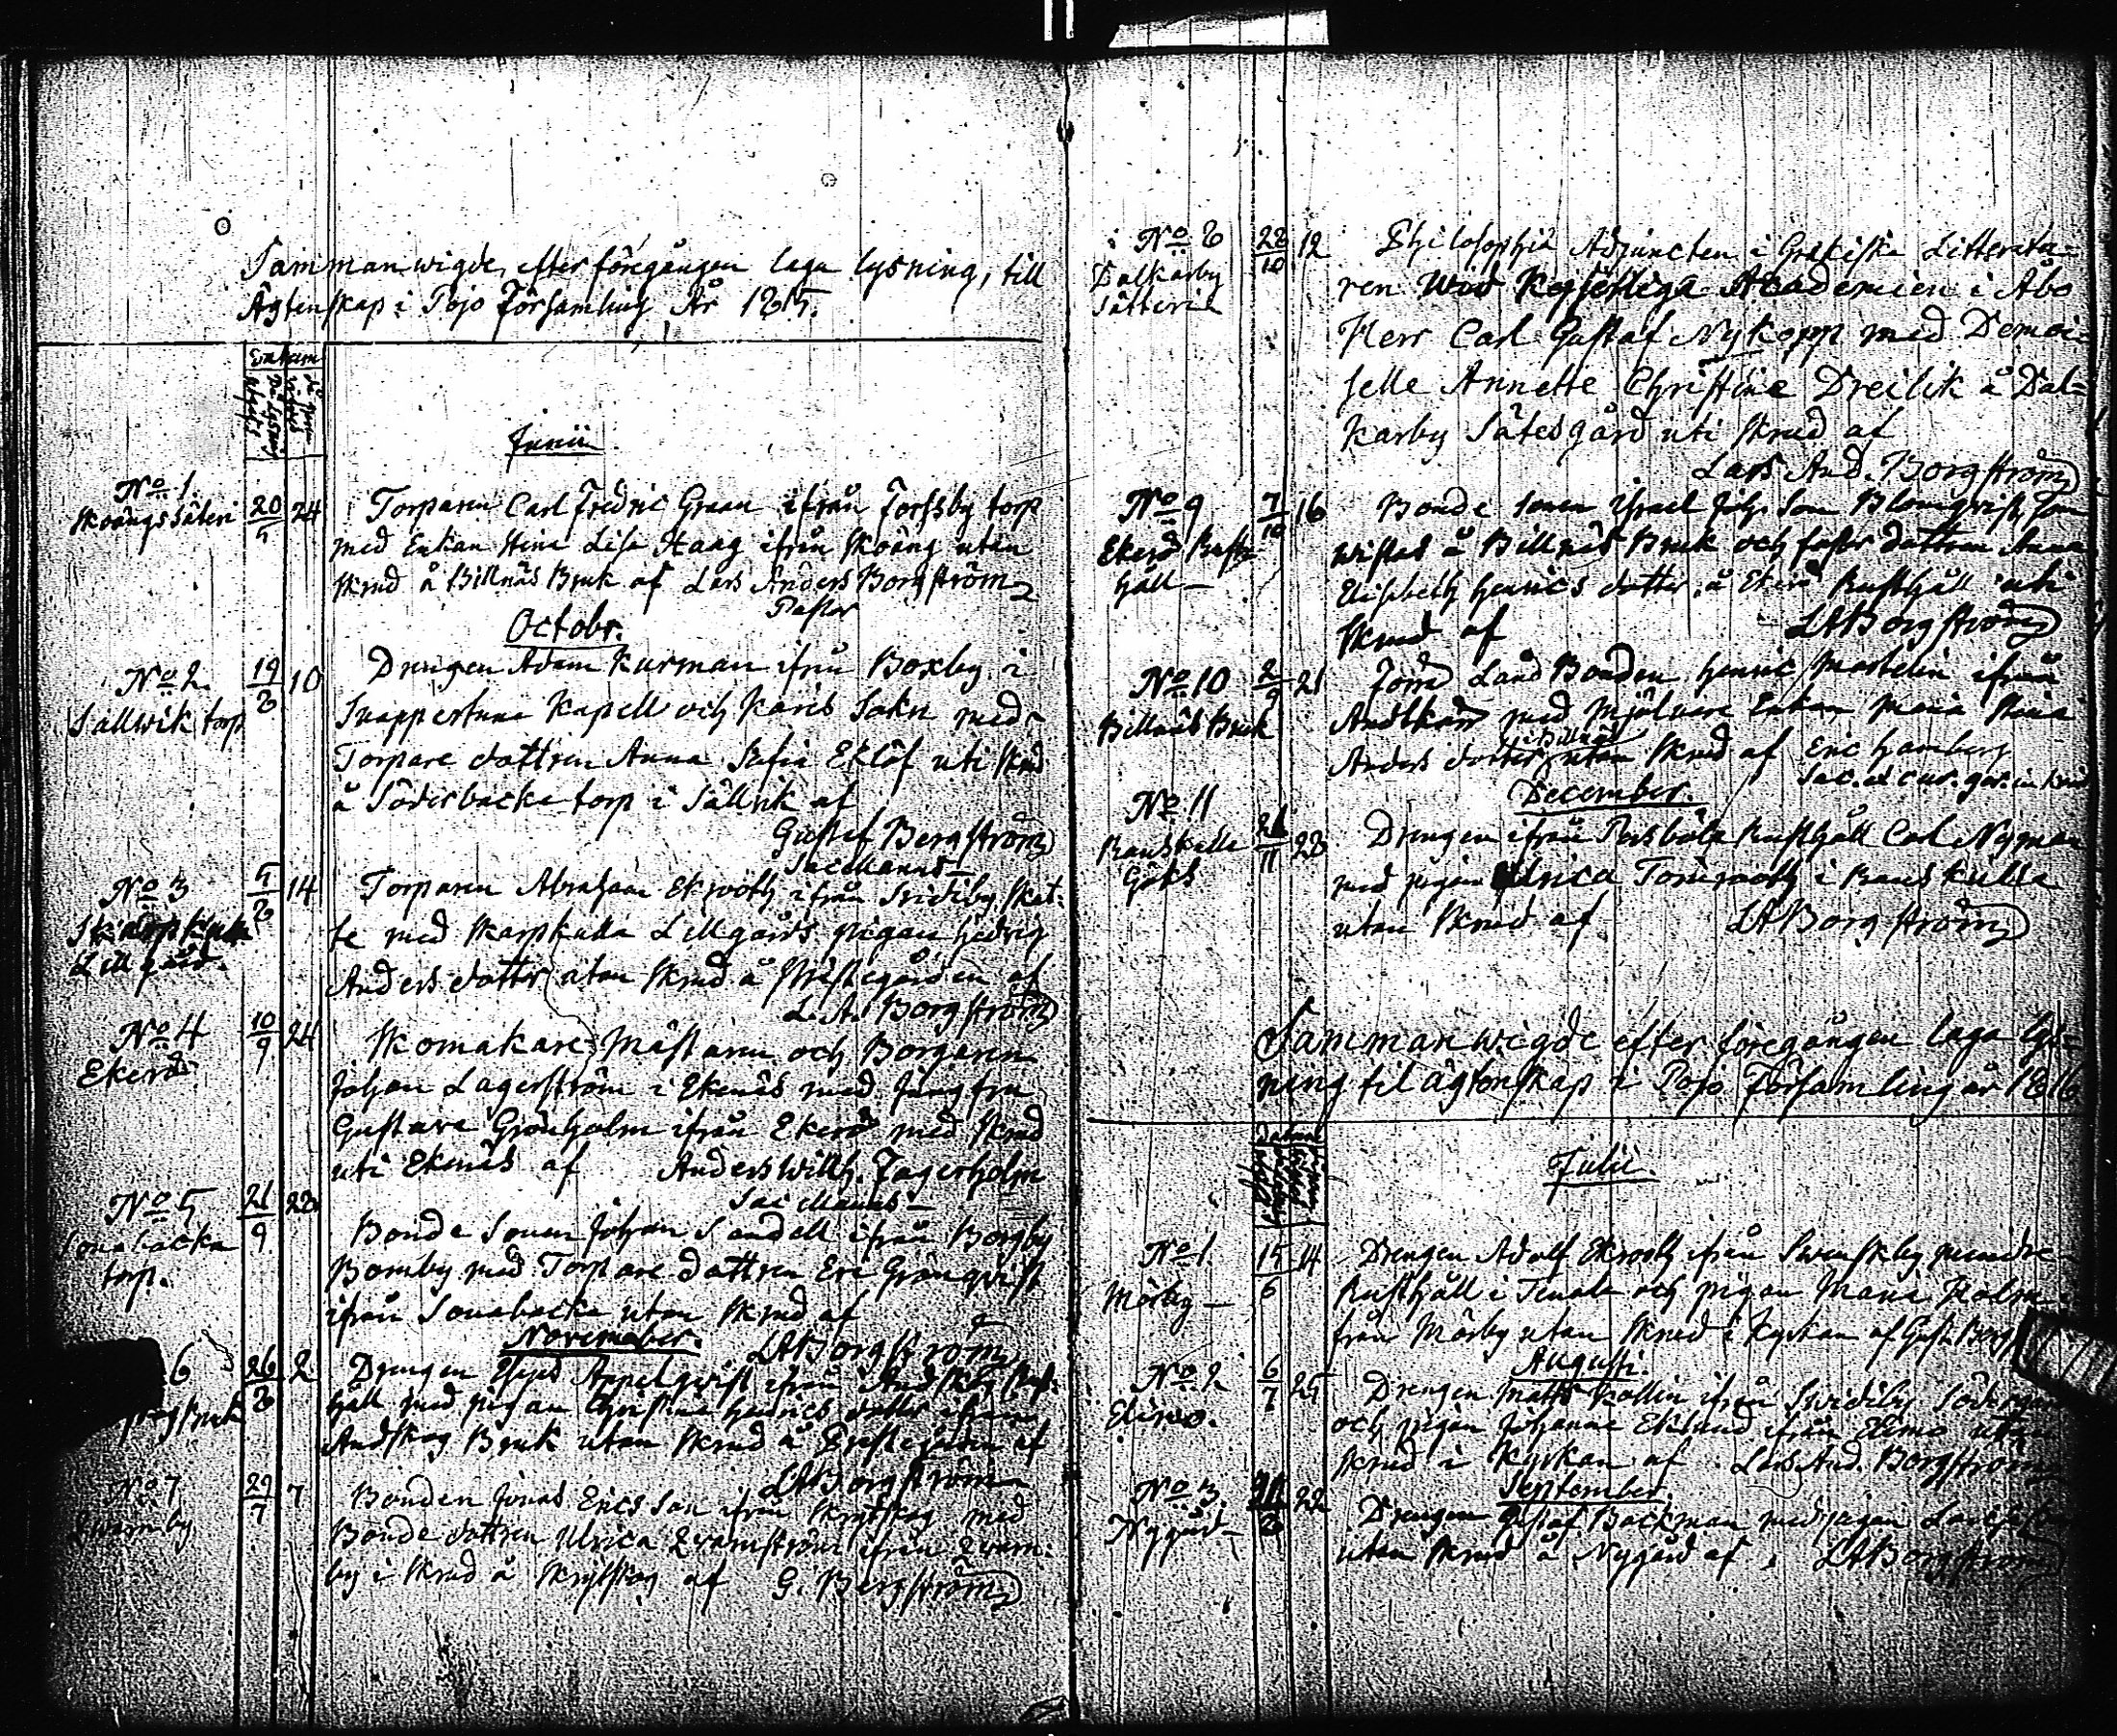 Sammanwigde, efter föregången laga lysning, till
Ägtenskap i Pojo Församling År 1815.
Datum
Junii
No 1.
Skoängs säteri
20/5 24
Torparen Carl Fredric Graan ifrån Forssby torp
med Enkan Stina Lisa Haag ifrån Skoäng utan
Skrud å Billnäs Bruk af Lars Anders Borgström
Pastor
Octobr.
No 2.
Sällwik torp
19/8 10
Drengen Adam Kurman ifrån Boxby i
Snappertuna Kapell och Karis Sokn med
Torpare dottren Anna Sofia Eklöf uti Skrud
å Söderbacka torp i Sällvik af
Gustaf Bergström
Sac Manus-
No 3
Skarpkulla
Lillgård.
5/8 14
Torparen Abraham Ekroth ifrån Svidiby Skat-
te med Skarpkulla Lillgårds pigan Hedvig
Anders dotter utan Skrud å Prästegården af
L. A. Borgström
No 4
Ekerö
10/9 24
Skomakare Mästaren och Borgaren
Johan Lagerström i Ekenäs med Jungfru
Gustava Grönholm ifrån Ekerö med Skrud
uti Ekenäs af Anders Wilh. Fagerholm
Sac Manus-
No 5
Sonabacka
torp.
21/9 28
Bonde Sonen Johan Sandell ifrån Borgby
Bomby med Torpare dottren Eva Grönqvist
ifrån Sonabacka utan Skrud af
LABorgström
November.
6
Bruk
26/8 2
Drengen Appelqvist ifrån
håll med pigan Christina Henrics dotter ifrån
Andskog Bruk utan Skrud å Prestegården af
LABorgström
No 7
Qvarnby
29/7 7
Bonden Jonas Erics Son ifrån Skrytskog med
Bonde dottren Ulrica Qvarnström ifrån Qvarn-
by i Skrud å Skrytskog af G. Bergström
No 8
Dalkarby
Sätteri
28/10 12
Philosophiæ Adjuncten i Grekiska Litteratu-
ren Wid Kejserliga Academien i Åbo
Herr Carl Gustaf Nykopp med Demoi-
selle Annette Christine Dreilik å Dal-
karby Sätesgård uti Skrud af
Lars And. Borgström
No 9
Ekerö Rust
håll-
7/10 16
Bonde Sonen Israel Joh. Son Blomqvist Som
wistas å Billnäs Bruk och dottren Anna
Elisabeth Henrics dotter å Ekerö Rusthåll uti
Skrud af LABorgström
No 10
Billnäs Bruk
2/9 21
Förra Land Bonden Henric Martelin ifrån
med Mjölnare Enkan Maria Stina
Anders dotter i Billnäs utan Skrud af Eric Hamberg
Sac. et cur. gar.
December.
No 11
Ranskulla
Göks
21/11 28
Drengen ifrån Persböle Rusthåll Carl Nyman
med pigan Ulrica Törnroth i Ranskulla
utan Skrud af LABorgström
Sammanwigde efter föregången laga lys-
ning til ägtenskap i Pojo Församling år 1816
Datum
Julii
No 1.
Mörby-
15/6 14
Drengen Adolf Ekroth ifrån Svenskby mindre
Rusthåll i Tenala och pigan Maria Holm-
från Mörby utan Skrud i Kyrkan af Gust. Berg
Augusti.
No 2
Elimo.
6/7 25
Drengen Matts Kollin ifrån Svidiby Södergård
och pigan Johanna Eklund ifrån Elimo utan
Skrud i Kyrkan af Lars And. Borgström
September.
No 3.
Nygård-
22
Drengen Gustaf Backman med pigan
utan Skrud å Nygård af LABorgström